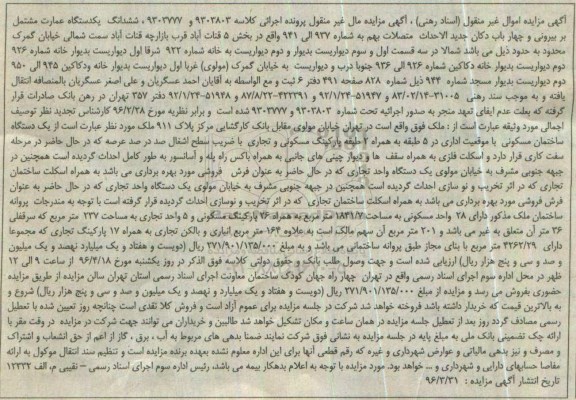 آگهی مزایده اموال غیر منقول (اسناد رهنی) ، آگهی مزایده مال غیر منقول پرونده اجرائی کلاسه ۹۳۰۳۸۰۳ و ۹۳۰۳۷۷۷ ، ششدانگ یکدستگاه عمارت مشتمل
بر بیرونی و چهار باب دکان جدید الاحداث متصلات بهم به شماره ۹۳۷ الی ۹۴۱ واقع در بخش ۵ قنات آباد قرب بازارچه قنات آباد سمت شمالی خیابان گمرک
محدود به حدود ذیل می باشد شمالا در سه قسمت اول و سوم دیواریست بدیوار و دوم دیواریست به خانه شماره ۹۲۲ شرقا اول دیواریست بدیوار خانه شماره ۹۲۶
دوم دیواریست بدیوار خانه دکاکین شماره ۹۲۶ الی ۹۳۶ جنوبا درب و دیواریست به خیابان گمرک (مولوی) غربا اول دیواریست بدیوار خانه ودکاکین ۹۴۵ الی ۹۵۰
دوم دیواریست بدیوار مسجد شماره ۹۴۴ ذیل شماره ۸۲۸ صفحه ۴۹۱ دفتر ۶ ثبت و مع الواسطه به آقایان احمد عسگریان و علی اصغر عسگریان بالمناصفه انتقال
یافته و به موجب سند رهنی ۳۱۰۰۵-۸۳/۰۲/۱۴ و ۵۱۹۴۷-۹۲/۱/۲۴ و ۴۲۲۳۹۱-۸۷/۸/۲۲ و ۵۱۹۴۸-۹۲/۱/۲۴ دفتر ۳۵۷ تهران در رهن بانک صادرات قرار
گرفته که بعلت عدم ایفای تعهد منجر به صدور اجرائیه تحت شماره ۹۳۰۳۸۰۳ و ۹۳۰۳۷۷۷ شده است و برابر نظریه مورخ ۹۶/۲/۲۸ کارشناس تجدید نظر توصیف
اجمالی مورد وثیقه عبارت است از : ملک فوق واقع است در تهران خیابان مولوی مقابل بانک کارگشایی مرکز پلاک ۹۱۱ ملک مورد نظر عبارت است از یک دستگاه
ساختمان مسکونی با موقعیت اداری در ۵ طبقه به همراه ۲ طبقه پارکینگ مسکونی و تجاری با ضریب سطح اشغال صد در صد عرصه که در حال حاضر در مرحله
سفت کاری قرار دارد و اسکلت فلزی به همراه سقف ها و دیوار چینی های جانبی به همراه باکس راه پله و آسانسور به طور کامل احداث گردیده است همچنین در
جبهه جنوبی مشرف به خیابان مولوی یک دستگاه واحد تجاری که در حال حاضر به عنوان فرش فروشی مورد بهره برداری می باشد به همراه اسکلت ساختمان
تجاری که در اثر تخریب و نو سازی احداث گردیده است همچنین در جبهه جنوبی مشرف به خیابان مولوی یک دستگاه واحد تجاری که در حال حاضر به عنوان
فرش فروشی مورد بهره برداری می باشد به همراه اسکلت ساختمان تجاری که در اثر تخریب و نوسازی احداث گردیده قرار گرفته است با توجه به مندرجات پروانه
ساختمان ملک مذکور دارای ۲۸ واحد مسکونی به مساحت ۱۸۳۱/۷ متر مربع به همراه ۲۶ پارکینگ مسکونی و ۵ واحد تجاری به مساحت ۲۳۷ متر مربع که سرقفلی
۳۶ متر آن متعلق به غیر می باشد و ۲۰۱ متر مربع آن سهم مالک است به علاوه ۱۶۴ متر مربع انباری و بالکن تجاری به همراه ۱۷ پارکینگ تجاری که مجموعا
دارای ۴۲۶۲/۲۹ متر مربع با بنای مجاز طبق پروانه ساختمانی می باشد و به مبلغ ۲۷۱/۹۰۱/۱۳۵/۰۰۰ ریال (دویست و هفتاد و یک میلیارد و نهصد و یک میلیون
و صد و سی و پنج هزار ریال) ارزیابی شده است و جهت وصول طلب بانک و حقوق دولتی کلاسه فوق الذکر در روز یکشنبه مورخ ۹۶/۴/۱۸ از ساعت ۹ الی ۱۲
ظهر در محل اداره سوم اجرای اسناد رسمی واقع در تهران چهار راه جهان کودک ساختمان معاونت اجرای اسناد رسمی استان تهران سالن مزایده از طریق مزایده
حضوری بفروش می رسد و مزایده از مبلغ ۲۷۱/۹۰۱/۱۳۵/۰۰۰ ریال (دویست و هفتاد و یک میلیارد و نهصد و یک میلیون و صد و سی و پنج هزار ریال) شروع و
به بالاترین قیمت که خریدار داشته باشد فروخته خواهد شد شرکت در جلسه مزایده برای عموم آزاد است و فروش کلا نقدی است چنانچه روز تعیین شده با تعطیل
رسمی مصادف گردد روز بعد از تعطیل جلسه مزایده در همان ساعت و مکان تشکیل خواهد شد طالبین و خریداران می توانند جهت شرکت در مزایده در وقت مقرر با
ارائه چک تضمینی بانک ملی به مبلغ پایه در جلسه مزایده به نشانی فوق شرکت نمایند ضمنا بدهی های مربوط به آب ، برق ، گاز از اعم از حق انشعاب و اشتراک
و مصرف و نیز بدهی مالیاتی و عوارض شهرداری و غیره که رقم قطعی آنها برای این اداره معلوم نشده بعهده برنده مزایده است و تنظیم سند انتقال موکول به ارائه
مفاصا حسابهای دارایی و شهرداری و ... خواهد بود. مورد مزایده با توجه به اعلام بدهکار بیمه می باشد. رئیس اداره سوم اجرای اسناد رسمی – نقیبی م، الف ۱۲۳۳۲
تاریخ انتشار آگهی مزایده : ۹۶/۳/۳۱